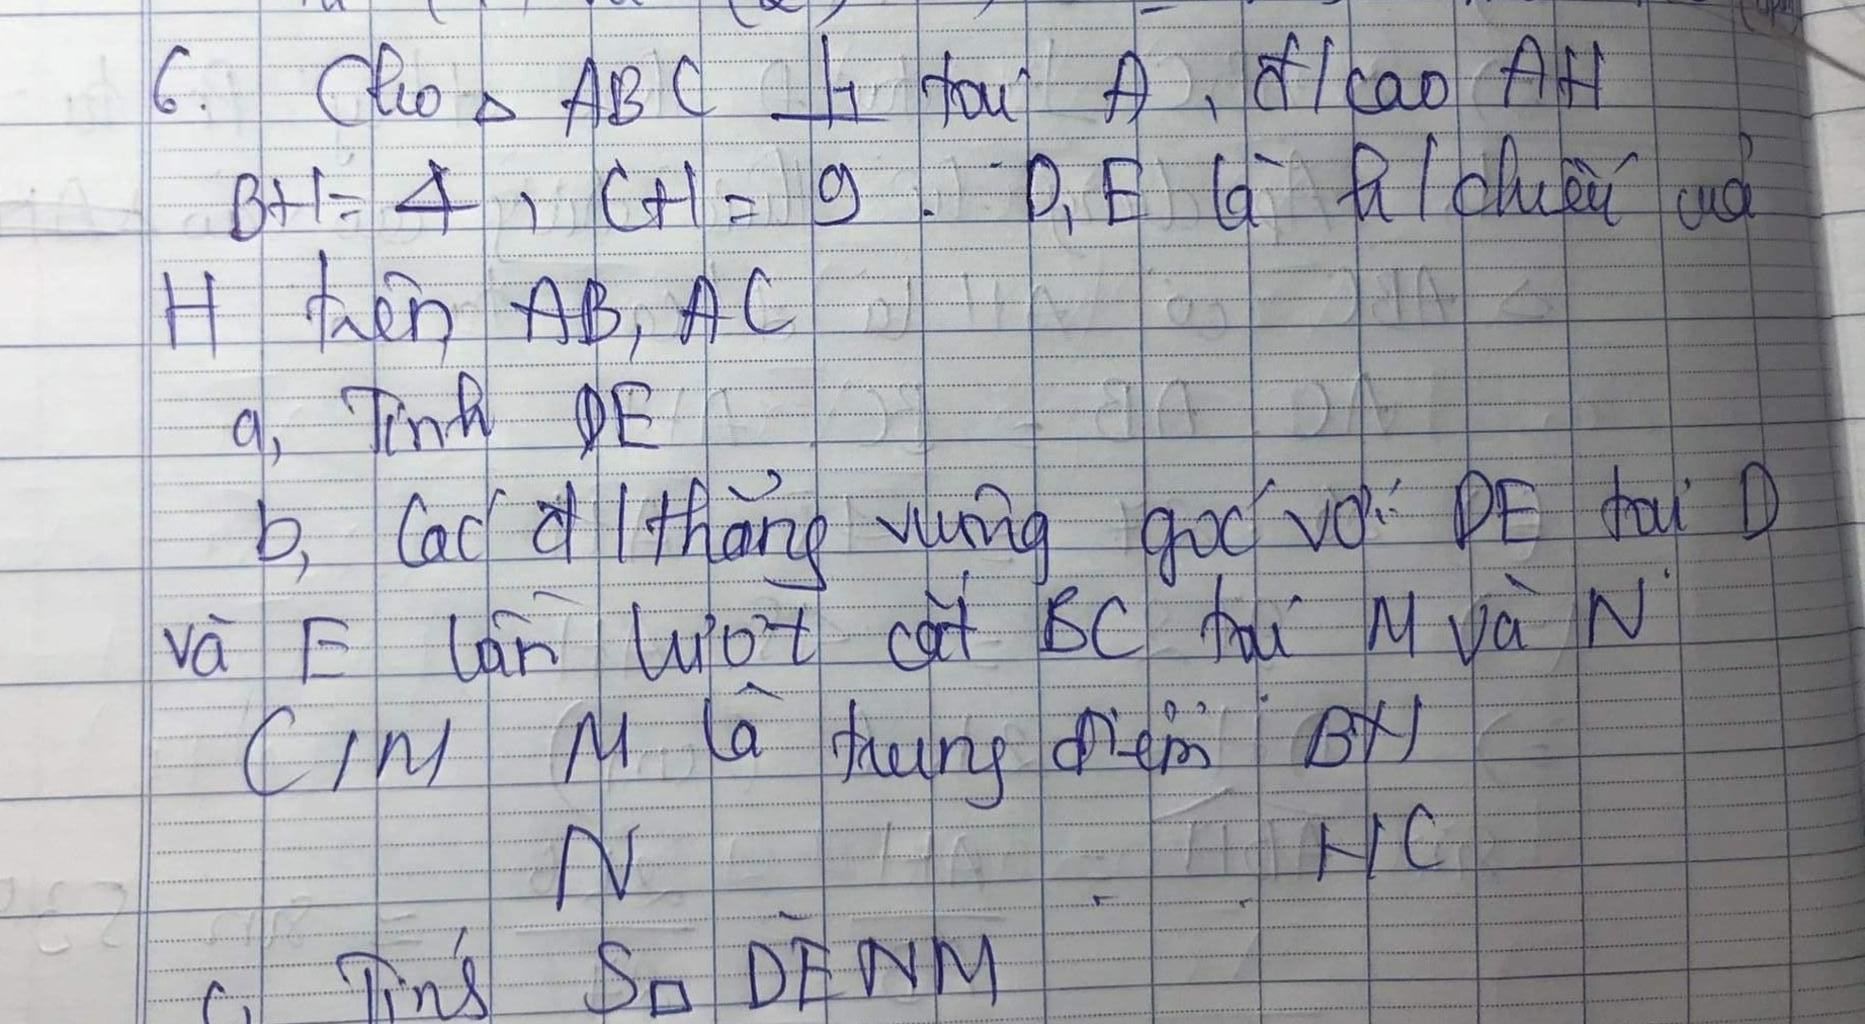 6. Cho △ ABC ⊥ tại A, đ/cao AH
BH = 4, CH = 9. D, E là h/chiếu của
H trên AB, AC
a, Tính DE
b, Các đ/thẳng vuông góc với DE tại D
và E lần lượt cắt BC tại M và N
C/M M là trung điểm BH
N HC
c, Tính S□ DENM